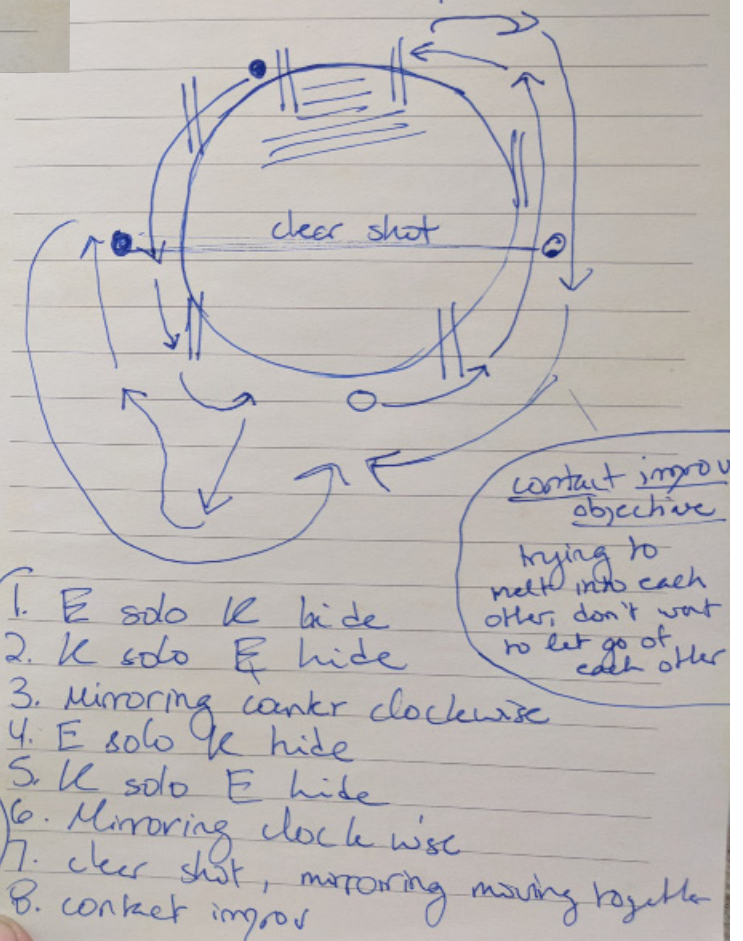 clear shot
contact improv
objective
trying to
melt into each
other, don't want
to let go of
each other
1. E solo K hide
2. K solo E hide
3. Mirroring counter clockwise
4. E solo K hide
5. K solo E hide
6. Mirroring clockwise
7. clear shot, mirroring moving together
8. contact improv